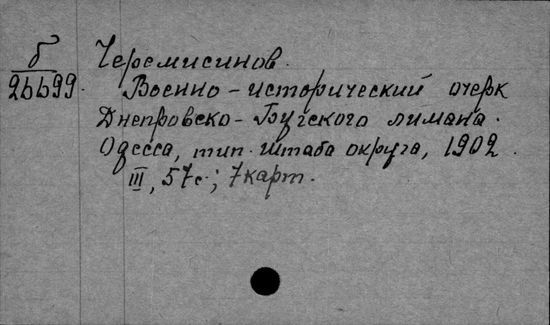 б Черемисинов.
26699. Военно-исторический очерк
Днепровско-Бугского лимана.
Одесса, тип. штаба округа, 1902.
III, 57с.; 7карт.